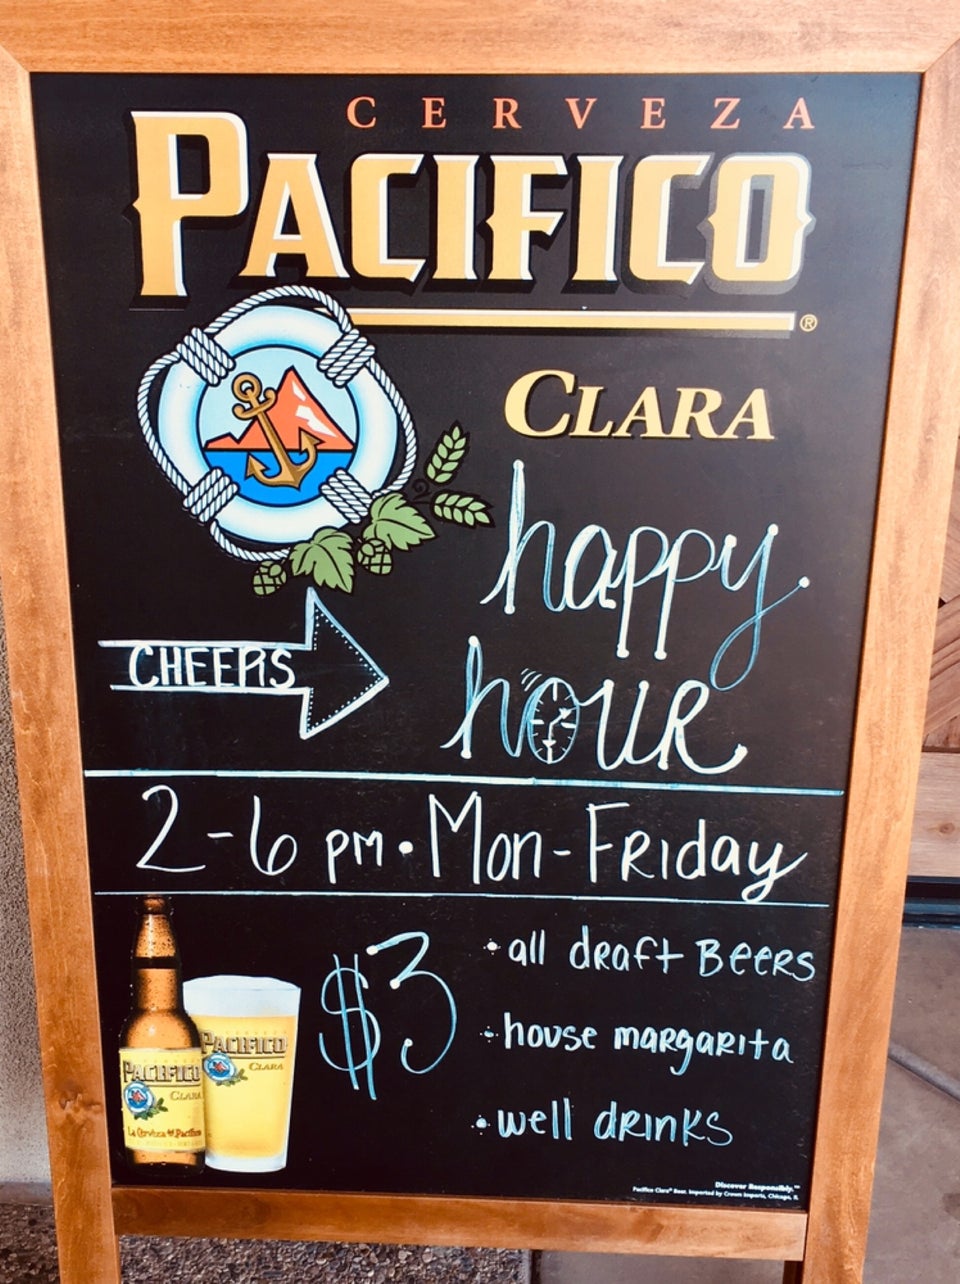 CERVEZA
PACIFICO
®
CLARA
happy
CHEERS
hour
2-6 pm • Mon-Friday
$3
• all draft Beers
• house margarita
• well drinks
PACIFICO
CLARA
PACIFICO
CLARA
La Cerveza del Pacífico
Discover Responsibly.™
Pacifico Clara® Beer. Imported by Crown Imports, Chicago, IL